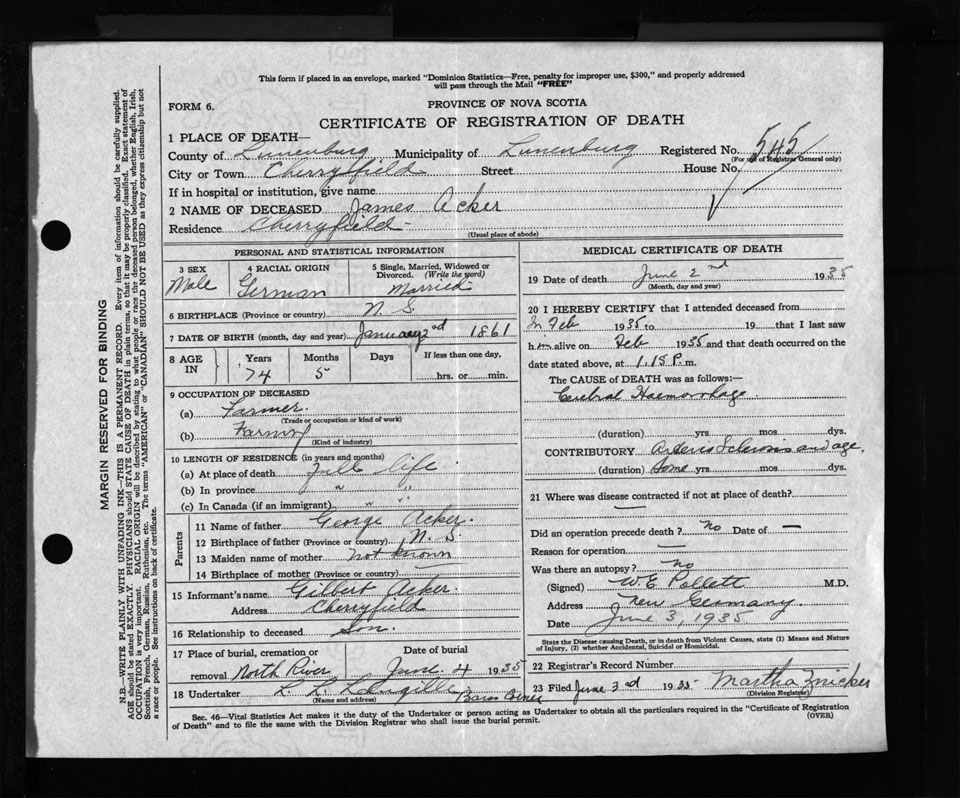 This form if placed in an envelope, marked "Dominion Statistics—Free, penalty for improper use, $300," and properly addressed
will pass through the Mail "FREE"
FORM 6.
PROVINCE OF NOVA SCOTIA
CERTIFICATE OF REGISTRATION OF DEATH
1 PLACE OF DEATH—
County of Lunenburg Municipality of Lunenburg Registered No. 545
(For use of Registrar General only)
City or Town Cherryfield Street House No.
If in hospital or institution, give name
2 NAME OF DECEASED James Acker
Residence Cherryfield
(Usual place of abode)
PERSONAL AND STATISTICAL INFORMATION
3 SEX Male
4 RACIAL ORIGIN German
5 Single, Married, Widowed or
Divorced. (Write the word)
Married
6 BIRTHPLACE (Province or country) N. S.
7 DATE OF BIRTH (month, day and year) January 2nd 1861
8 AGE IN
Years Months Days If less than one day,
74 5 hrs. or min.
9 OCCUPATION OF DECEASED
(a) Farmer.
(Trade or occupation or kind of work)
(b) Farming
(Kind of industry)
10 LENGTH OF RESIDENCE (in years and months)
(a) At place of death Full life
(b) In province " "
(c) In Canada (if an immigrant) " "
Parents
11 Name of father George Acker.
12 Birthplace of father (Province or country) N. S.
13 Maiden name of mother not known
14 Birthplace of mother (Province or country) —
15 Informant's name Gilbert Acker.
Address Cherryfield
16 Relationship to deceased Son.
17 Place of burial, cremation or Date of burial
removal North River June 4 1935
18 Undertaker L. L. Langille
(Name and address)
MEDICAL CERTIFICATE OF DEATH
19 Date of death June 2nd 1935
(Month, day and year)
20 I HEREBY CERTIFY that I attended deceased from
In Feb 1935 to 19 that I last saw
him alive on Feb 1935 and that death occurred on the
date stated above, at 1.15 P. m.
The CAUSE OF DEATH was as follows:—
Cerebral Haemorrhage
(duration) yrs. mos. dys.
CONTRIBUTORY Arterio Sclerosis and age.
(duration) yrs. mos. dys.
21 Where was disease contracted if not at place of death?
—
Did an operation precede death? no Date of —
Reason for operation —
Was there an autopsy? no
(Signed) W. E. Pollett M.D.
Address New Germany
Date June 3, 1935
State the Disease Causing Death, or in death from Violent Causes, state (1) Means and Nature
of Injury, (2) whether Accidental, Suicidal or Homicidal.
22 Registrar's Record Number
23 Filed June 3rd 1935 Martha Zwicker
(Division Registrar)
Sec. 46—Vital Statistics Act makes it the duty of the Undertaker or person acting as Undertaker to obtain all the particulars required in the "Certificate of Registration
of Death" and to file the same with the Division Registrar who shall issue the burial permit.
(OVER)
MARGIN RESERVED FOR BINDING
N.B.—WRITE PLAINLY WITH UNFADING INK—THIS IS A PERMANENT RECORD. Every item of information should be carefully supplied.
AGE should be stated EXACTLY. PHYSICIANS should STATE CAUSE OF DEATH in plain terms, so that it may be properly classified. Exact statement of
OCCUPATION is very important. RACIAL ORIGIN will be described by stating to what people or race the deceased person belonged, whether English, Irish,
Scottish, French, German, Russian, Ruthenian, etc. The terms "AMERICAN" or "CANADIAN" SHOULD NOT BE USED as they express citizenship but not
a race or people. See instructions on back of certificate.